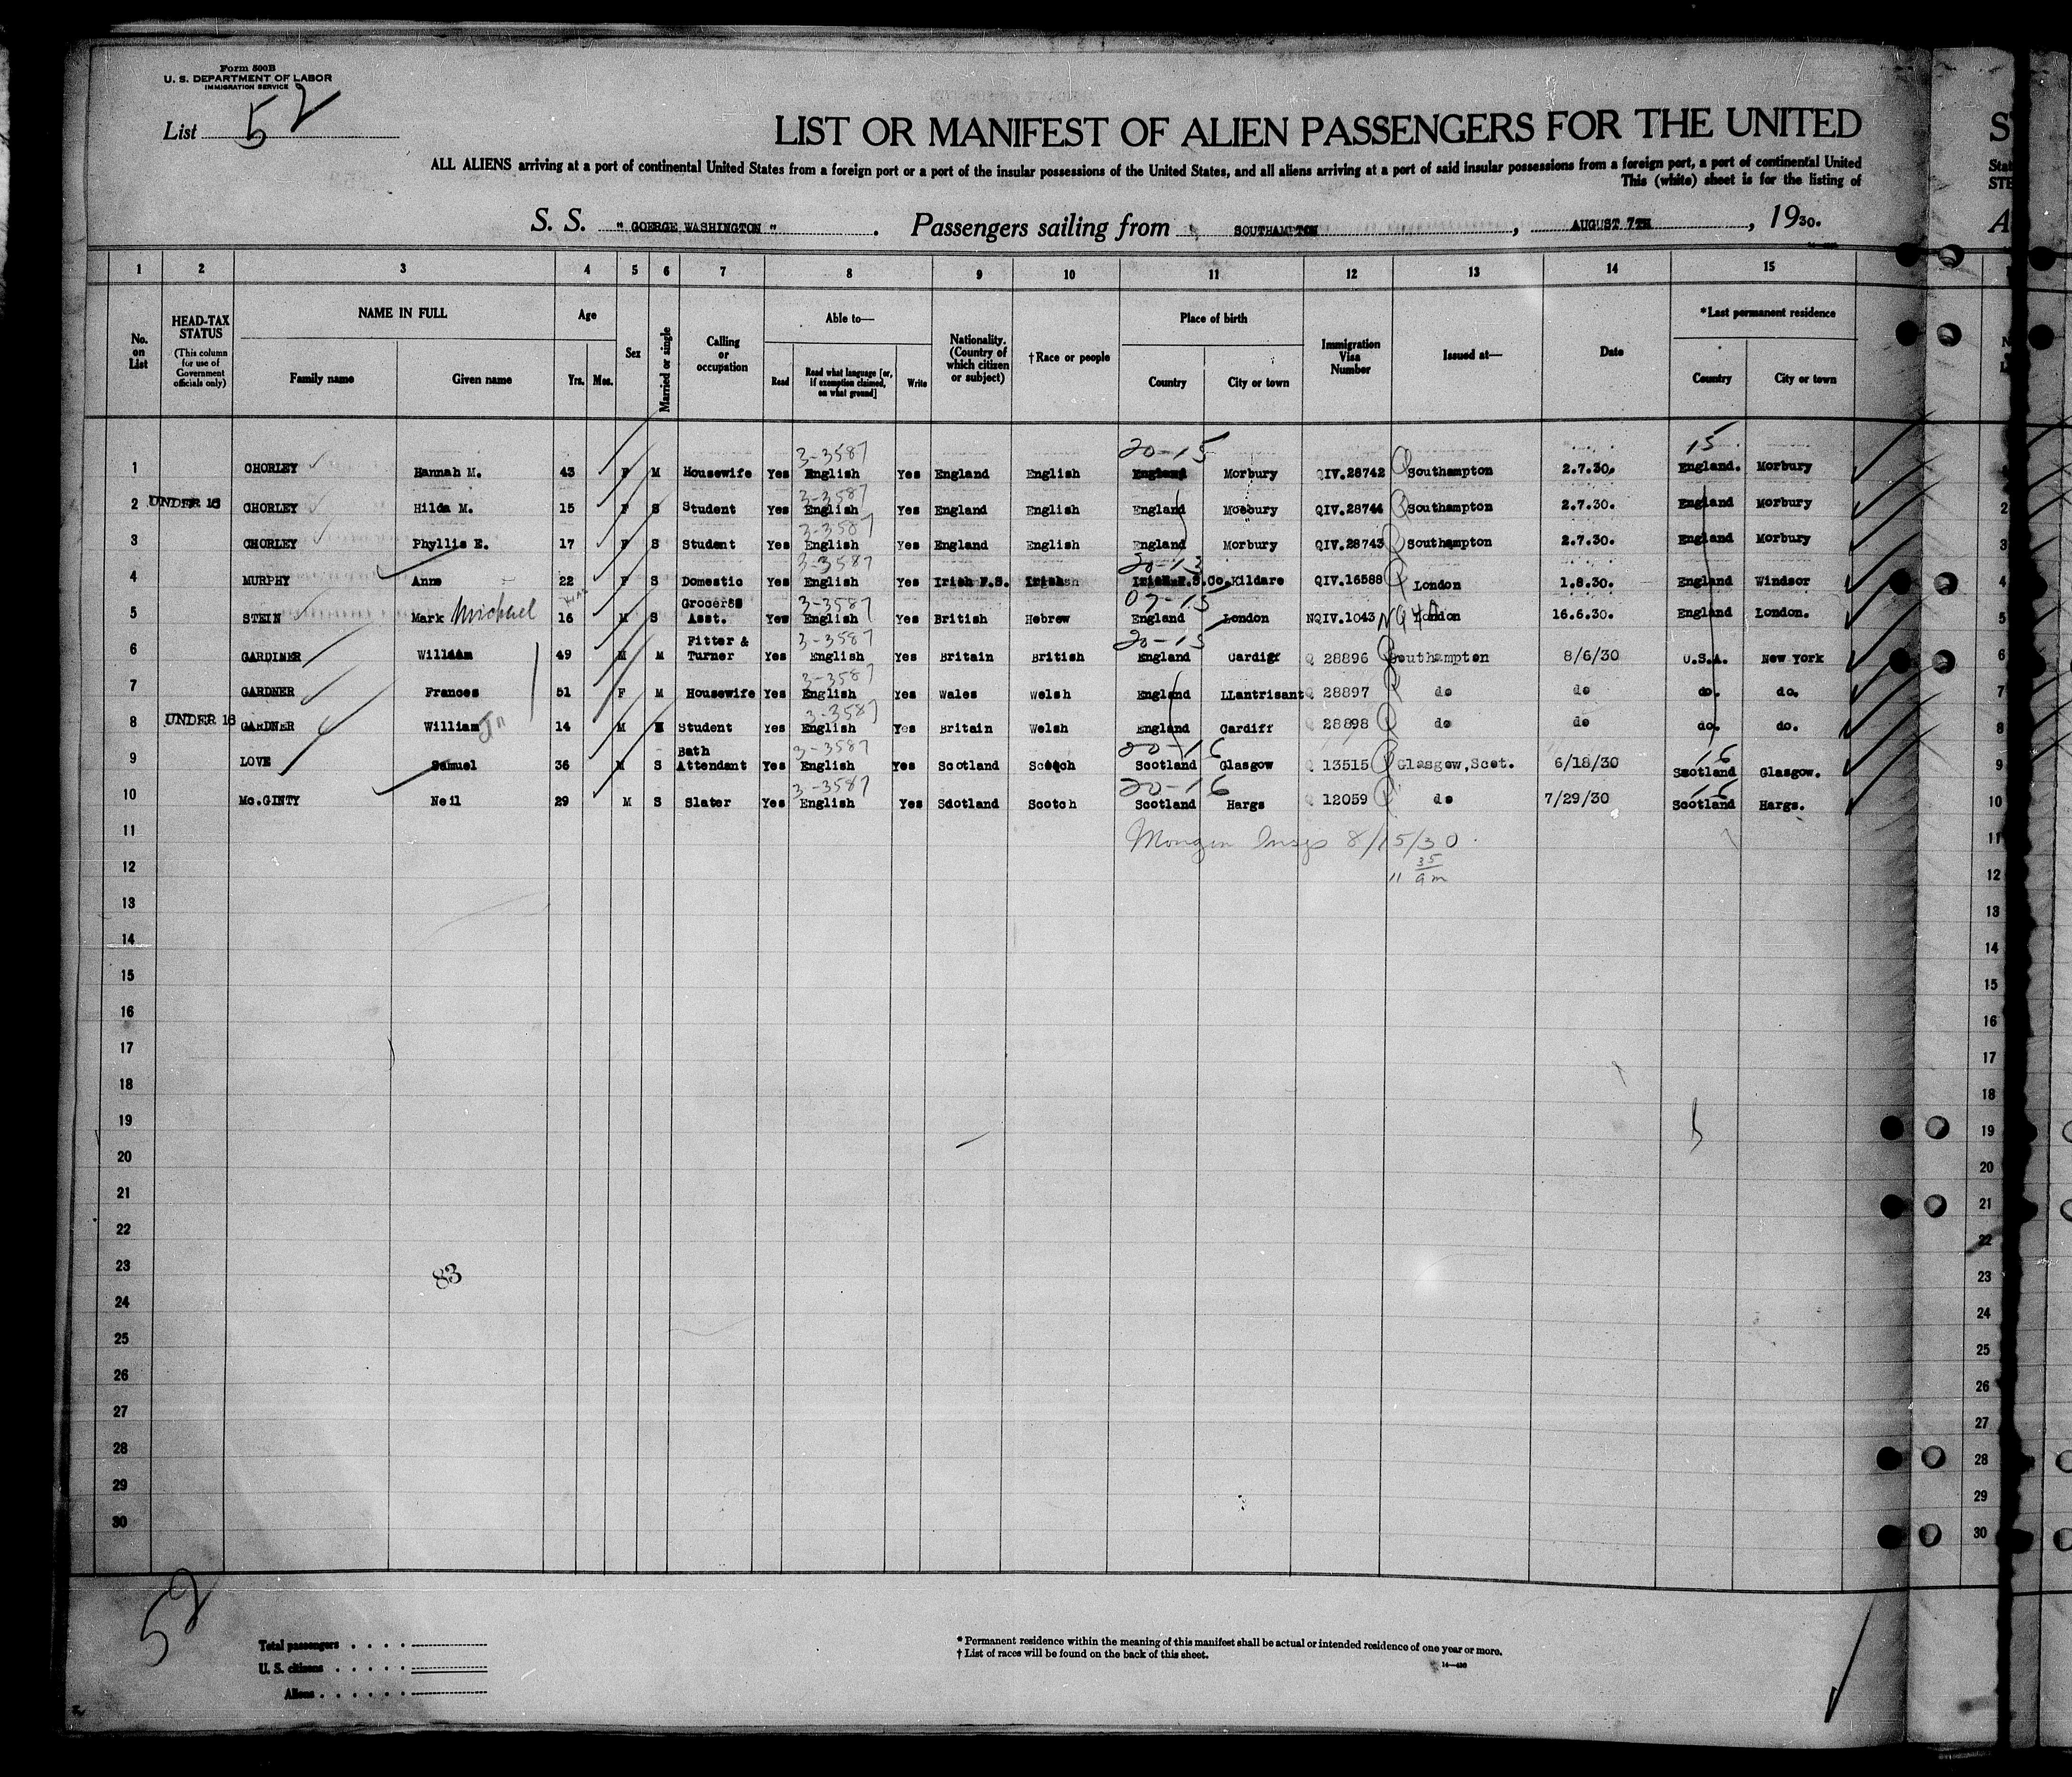 Form 500B
U. S. DEPARTMENT OF LABOR
IMMIGRATION SERVICE
List 52
LIST OR MANIFEST OF ALIEN PASSENGERS FOR THE UNITED
ALL ALIENS arriving at a port of continental United States from a foreign port or a port of the insular possessions of the United States, and all aliens arriving at a port of said insular possessions from a foreign port, a port of continental United
This (white) sheet is for the listing of
S. S. " GOERGE WASHINGTON " . Passengers sailing from SOUTHAMPTON , AUGUST 7TH , 1930.
1 2 3 4 5 6 7 8 9 10 11 12 13 14 15
No. on List
HEAD-TAX STATUS (This column for use of Government officials only)
NAME IN FULL Family name Given name
Age Yrs. Mos.
Sex
Married or single
Calling or occupation
Able to— Read Read what language [or, if exemption claimed, on what ground] Write
Nationality. (Country of which citizen or subject)
†Race or people
Place of birth Country City or town
Immigration Visa Number
Issued at—
Date
*Last permanent residence Country City or town
3-3587 20-15 15
1 CHORLEY Hannah M. 43 F M Housewife Yes English Yes England English England Morbury QIV.28742 Southampton 2.7.30. England. Morbury
3-3587
2 UNDER 16 CHORLEY Hilda M. 15 F S Student Yes English Yes England English England Mosbury QIV.28744 Southampton 2.7.30. England Morbury 2
3-3587
3 CHORLEY Phyllis E. 17 F S Student Yes English Yes England English England Morbury QIV.28743 Southampton 2.7.30. England Morbury 3
3-3587 20-13
4 MURPHY Anne 22 F S Domestic Yes English Yes Irish F.S. Irish Irish F.S. Co.Kildare QIV.16588 London 1.8.30. England Windsor 4
3-3587 07-15
5 STEIN Mark Michael 16 M S Grocers Asst. Yes English Yes British Hebrew England London NQIV.1043 London 16.6.30. England London. 5
3-3587 20-15
6 GARDINER William 49 M M Fitter & Turner Yes English Yes Britain British England Cardiff Q 28896 Southampton 8/6/30 U.S.A. New York 6
3-3587
7 GARDNER Frances 51 F M Housewife Yes English Yes Wales Welsh England LLantrisant Q 28897 do do do. do. 7
3-3587
8 UNDER 16 GARDNER William Jr 14 M Student Yes English Yes Britain Welsh England Cardiff Q 28898 do do do. do. 8
3-3587 20-16 16
9 LOVE Samuel 36 M S Bath Attendant Yes English Yes Scotland Scotch Scotland Glasgow Q 13515 Glasgow,Scot. 6/18/30 Scotland Glasgow. 9
3-3587 20-16 16
10 Mc.GINTY Neil 29 M S Slater Yes English Yes Sdotland Scotch Scotland Hargs Q 12059 do 7/29/30 Scotland Hargs. 10
11 8/15/30 11
12 11 35 am 12
13 13
14 14
15 15
16 16
17 17
18 18
19 19
20 20
21 21
22 22
23 83 23
24 24
25 25
26 26
27 27
28 28
29 29
30 30
52
Total passengers
U. S. citizens
Aliens
* Permanent residence within the meaning of this manifest shall be actual or intended residence of one year or more.
† List of races will be found on the back of this sheet.